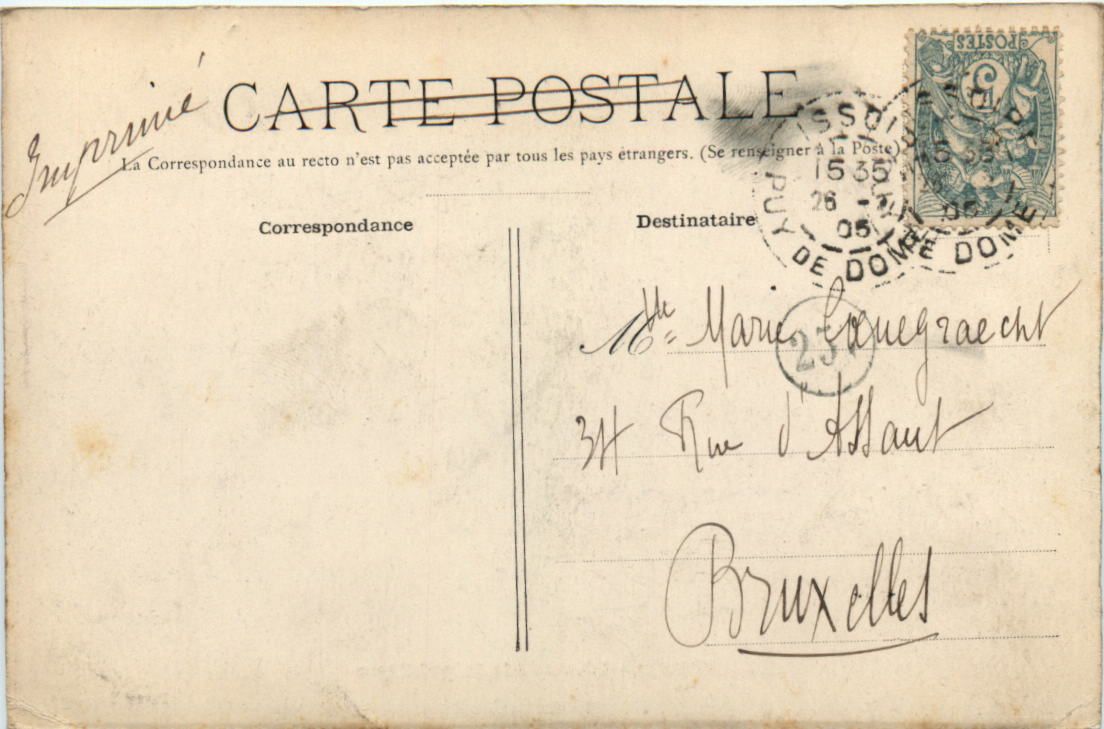 Imprimé
CARTE POSTALE
La Correspondance au recto n'est pas acceptée par tous les pays étrangers. (Se renseigner à la Poste)
Correspondance
Destinataire
POSTES
5
ISSOIRE
15 35
26
05
PUY DE DOME
237
Mlle Marie
34 Rue d'Assaut
Bruxelles